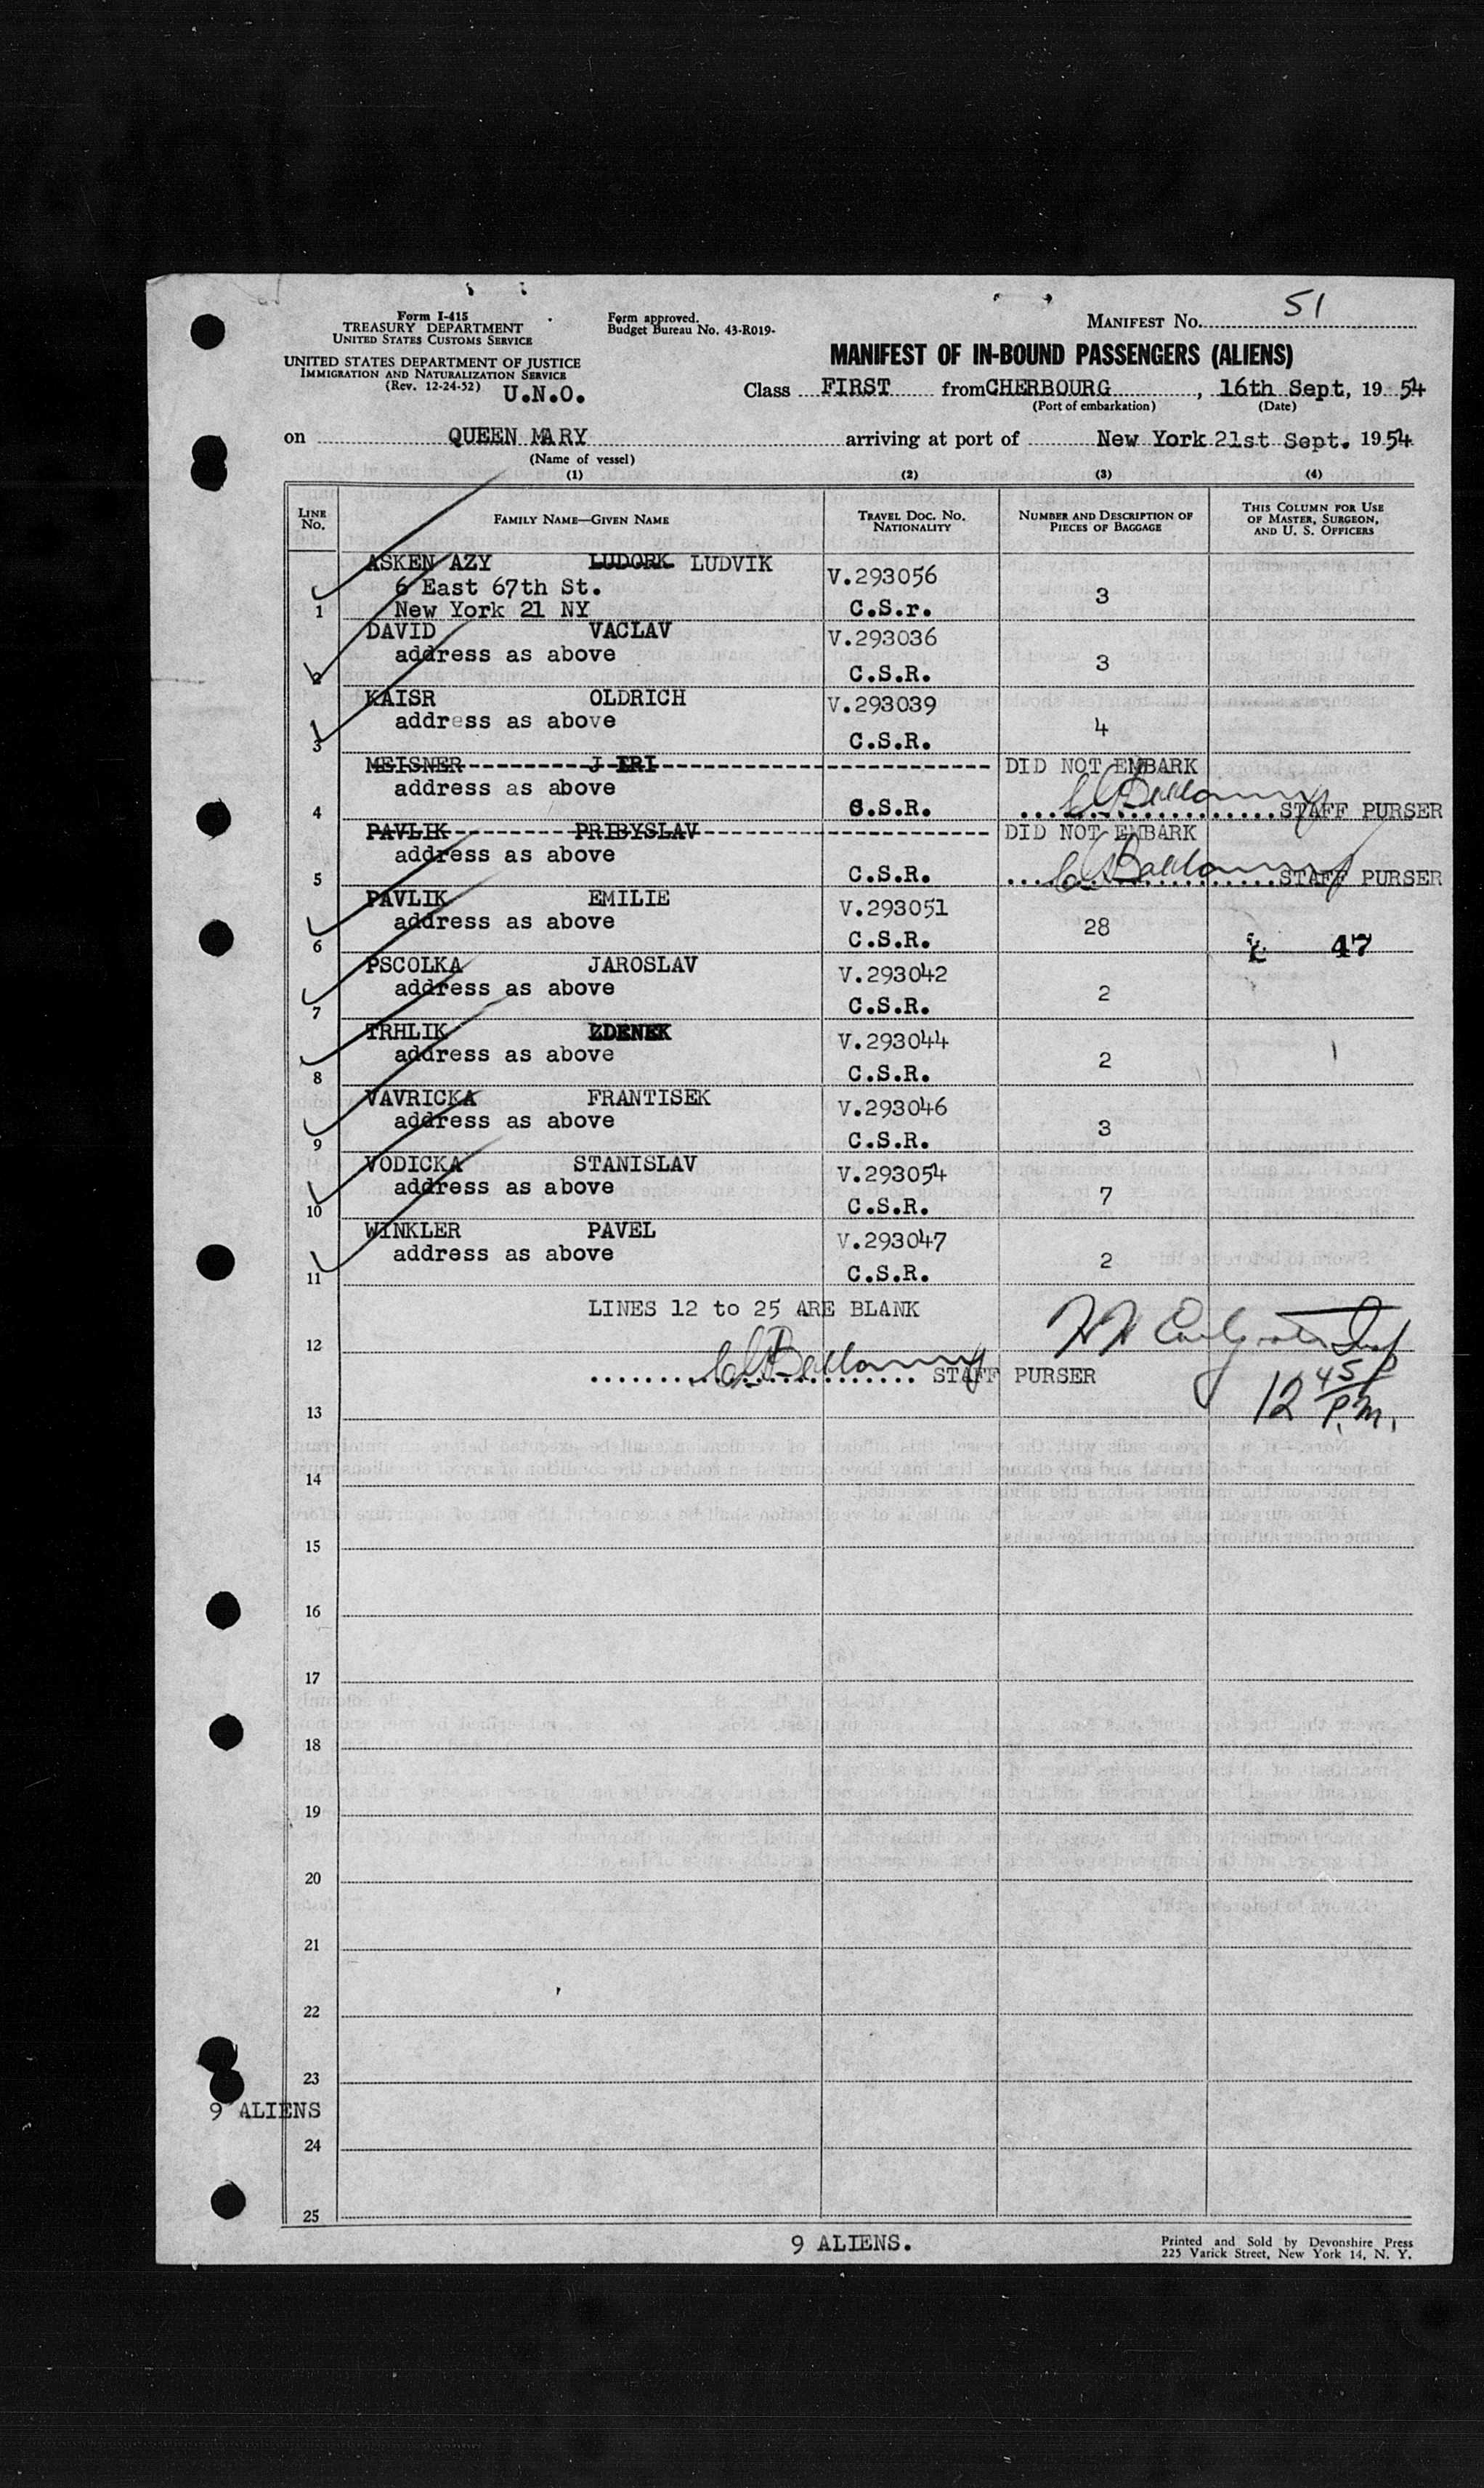 Form I-415
TREASURY DEPARTMENT
UNITED STATES CUSTOMS SERVICE
UNITED STATES DEPARTMENT OF JUSTICE
IMMIGRATION AND NATURALIZATION SERVICE
(Rev. 12-24-52) U.N.O.
Form approved.
Budget Bureau No. 43-R019-
MANIFEST NO. 51
MANIFEST OF IN-BOUND PASSENGERS (ALIENS)
Class FIRST from CHERBOURG, 16th Sept, 19 54
(Port of embarkation) (Date)
on QUEEN MARY arriving at port of New York 21st Sept. 19 54
(Name of vessel)
(1) (2) (3) (4)
LINE No. FAMILY NAME—GIVEN NAME TRAVEL DOC. NO. NATIONALITY NUMBER AND DESCRIPTION OF PIECES OF BAGGAGE THIS COLUMN FOR USE OF MASTER, SURGEON, AND U. S. OFFICERS
ASKEN AZY LUDORK LUDVIK V.293056
6 East 67th St. 3
1 New York 21 NY C.S.r.
DAVID VACLAV V.293036
address as above 3
2 C.S.R.
KAISR OLDRICH V.293039
address as above 4
3 C.S.R.
MEISNER J IRI DID NOT EMBARK
address as above
4 C.S.R. STAFF PURSER
PAVLIK PRIBYSLAV DID NOT EMBARK
address as above
5 C.S.R. STAFF PURSER
PAVLIK EMILIE V.293051
address as above 28
6 C.S.R. 47
PSCOLKA JAROSLAV V.293042
address as above 2
7 C.S.R.
TRHLIK ZDENEK V.293044
address as above 2
8 C.S.R.
VAVRICKA FRANTISEK V.293046
address as above 3
9 C.S.R.
VODICKA STANISLAV V.293054
address as above 7
10 C.S.R.
WINKLER PAVEL V.293047
address as above 2
11 C.S.R.
LINES 12 to 25 ARE BLANK
12
STAFF PURSER
12 45 P.M.
13
14
15
16
17
18
19
20
21
22
23
9 ALIENS
24
25
9 ALIENS.
Printed and Sold by Devonshire Press
225 Varick Street, New York 14, N. Y.